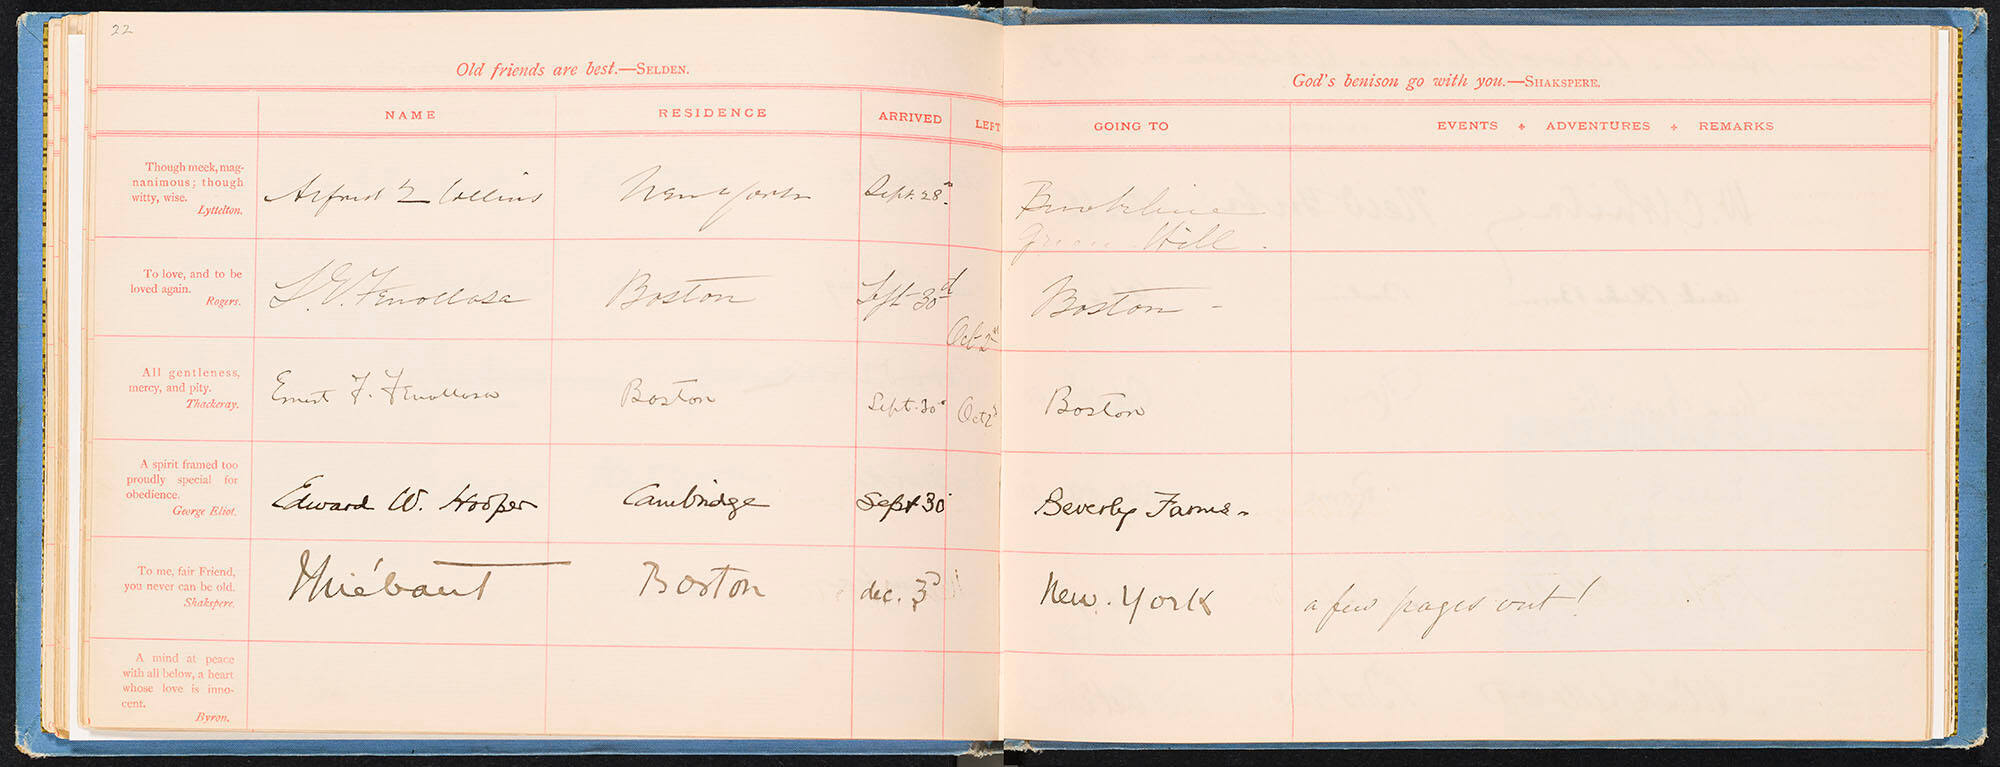 22
Old friends are best.—SELDEN.
NAME RESIDENCE ARRIVED LEFT
Though meek, mag-
nanimous; though
witty, wise.
Lyttelton.
Alfred Q Collins New York Sept. 28
To love, and to be
loved again.
Rogers.
L. V. Fenollosa Boston Sept 30 Oct 2
All gentleness,
mercy, and pity.
Thackeray.
Ernest F. Fenollosa Boston Sept. 30 Oct 2
A spirit framed too
proudly special for
obedience.
George Eliot.
Edward W. Hooper Cambridge Sept 30
To me, fair Friend,
you never can be old.
Shakspere.
Thiébaut Boston dec. 3
A mind at peace
with all below, a heart
whose love is inno-
cent.
Byron.
God's benison go with you.—SHAKSPERE.
GOING TO EVENTS + ADVENTURES + REMARKS
Brookline
Green Hill.
Boston -
Boston
Beverly Farms -
New. York a few pages out!